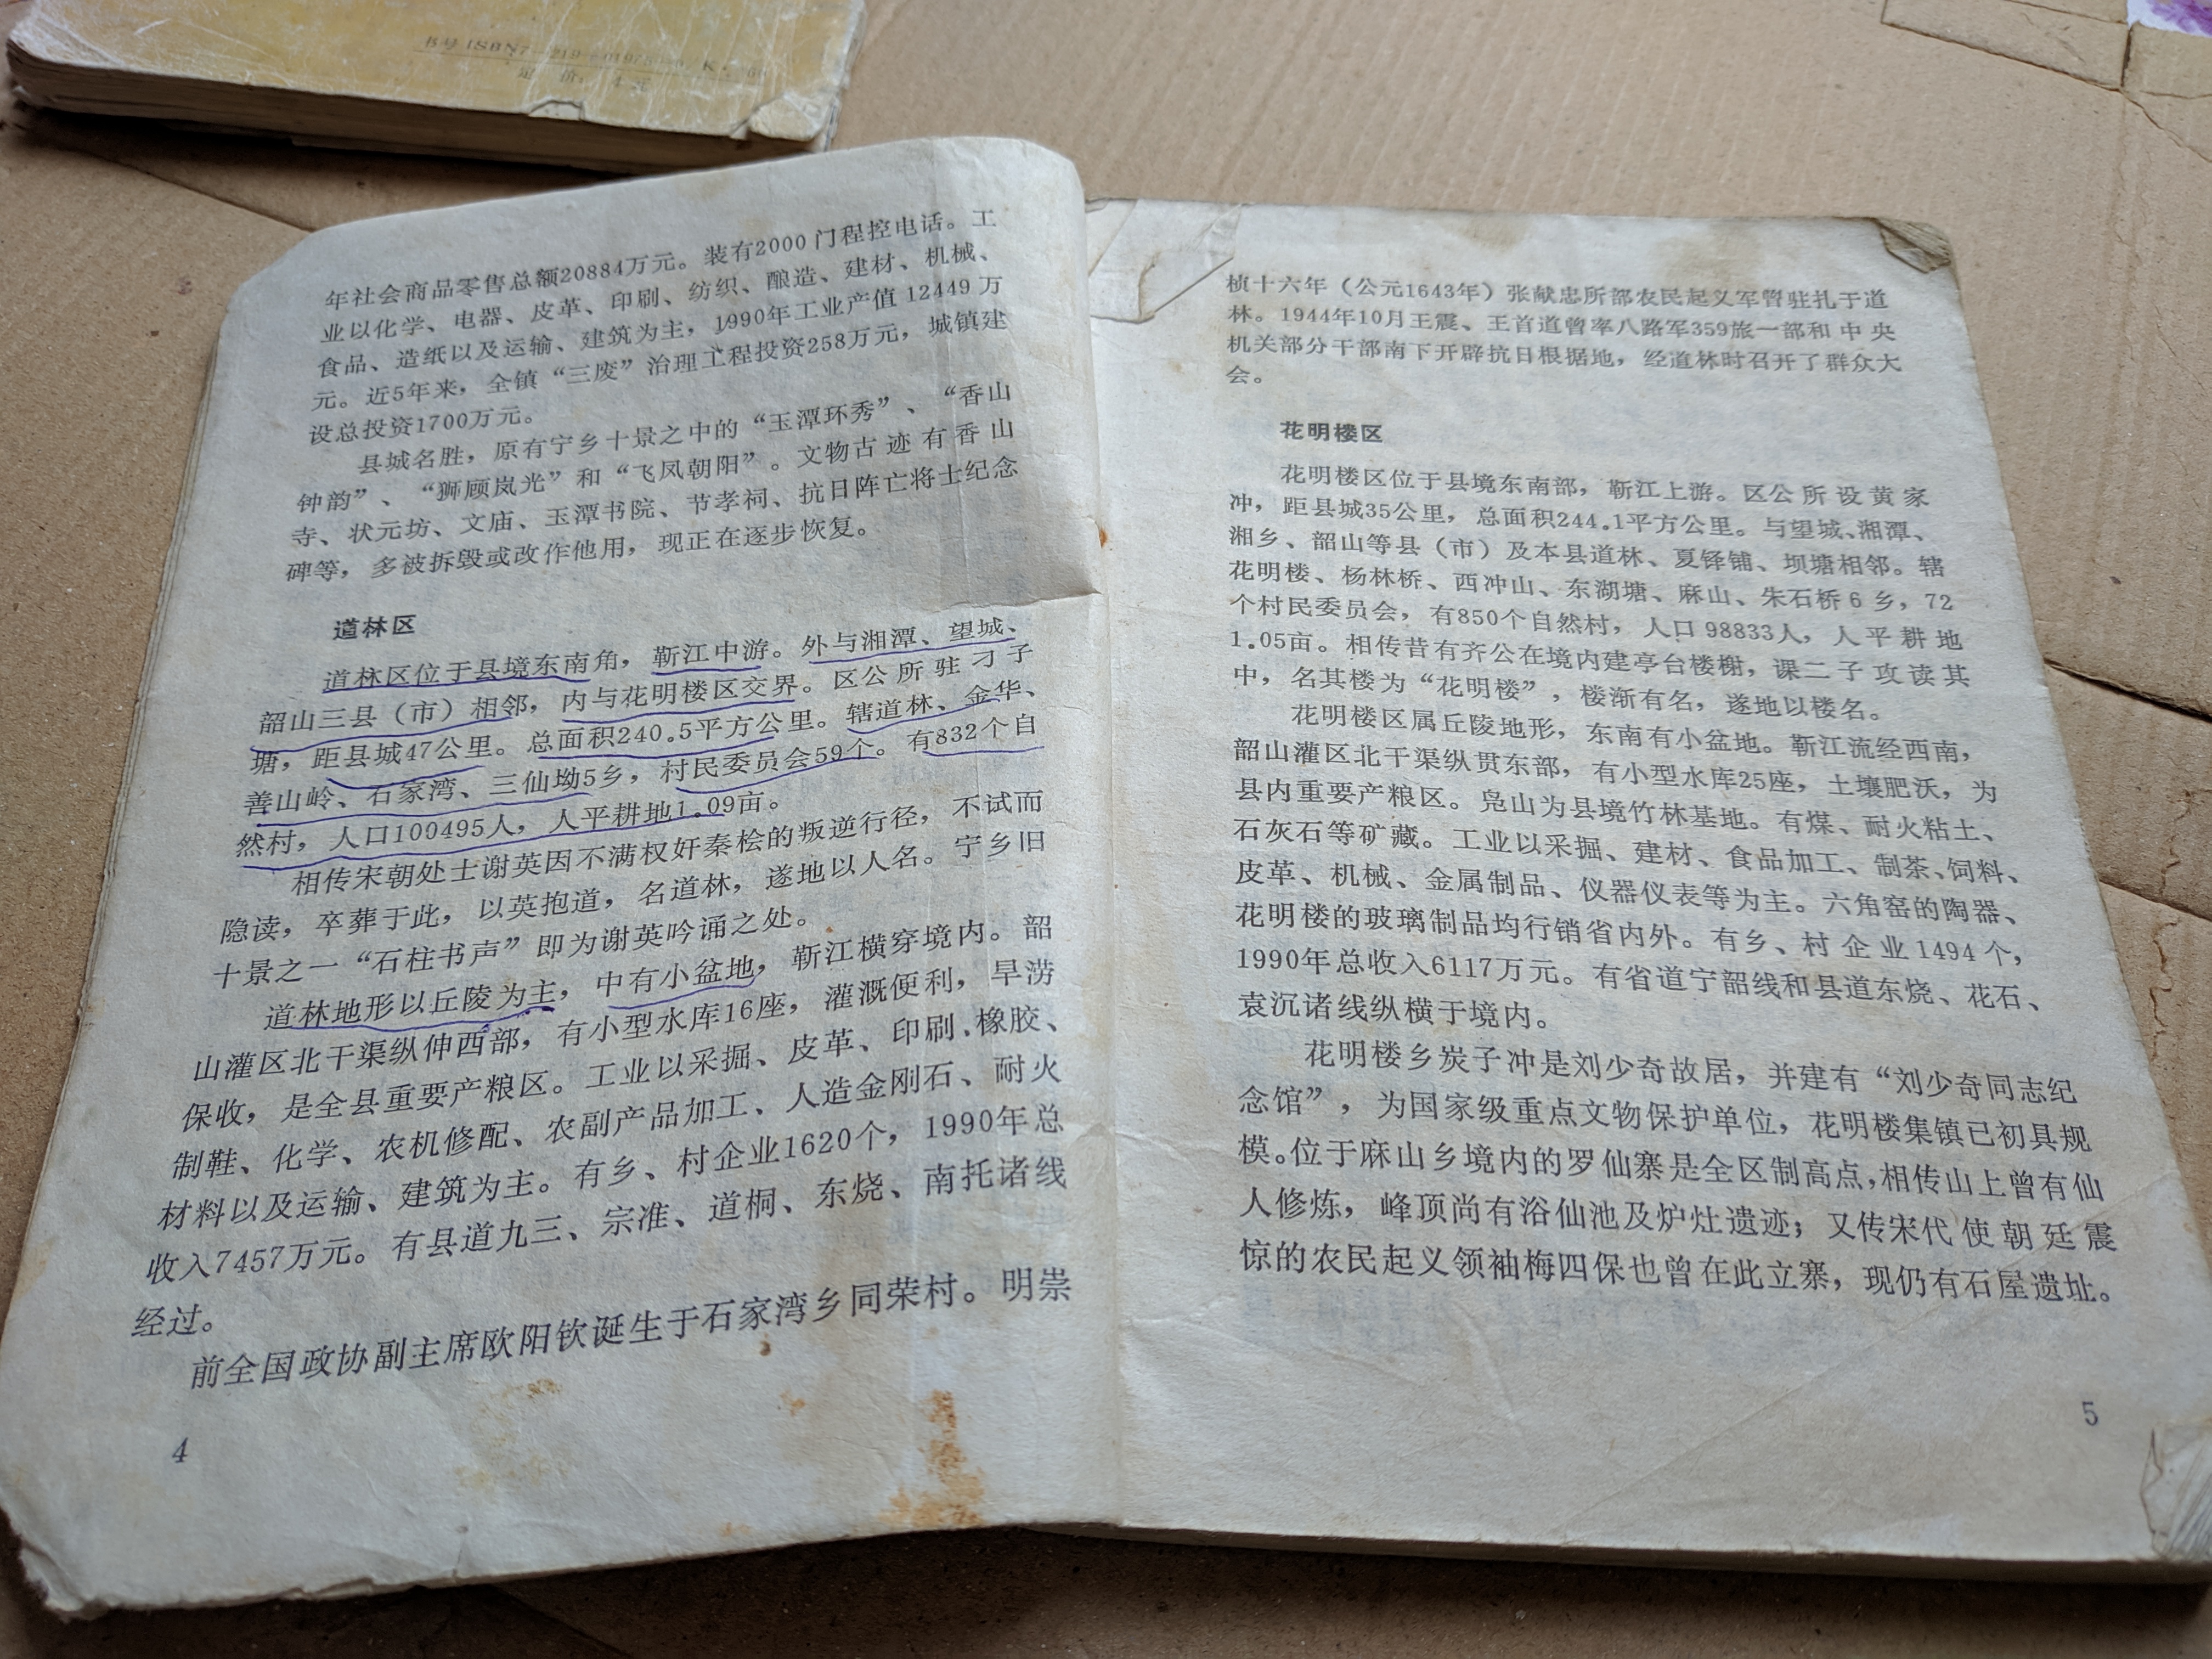 定 价: 4 元
年社会商品零售总额20884万元。装有2000门程控电话。工
业以化学、电器、皮革、印刷、纺织、酿造、建材、机械、
食品、造纸以及运输、建筑为主，1990年工业产值12449万
元。近5年来，全镇“三废”治理工程投资258万元，城镇建
设总投资1700万元。
县城名胜，原有宁乡十景之中的“玉潭环秀”、“香山
钟韵”、“狮顾岚光”和“飞凤朝阳”。文物古迹有香山
寺、状元坊、文庙、玉潭书院、节孝祠、抗日阵亡将士纪念
碑等，多被拆毁或改作他用，现正在逐步恢复。
道林区
道林区位于县境东南角，靳江中游。外与湘潭、望城、
韶山三县（市）相邻，内与花明楼区交界。区公所驻刁子
塘，距县城47公里。总面积240.5平方公里。辖道林、金华、
善山岭、石家湾、三仙坳5乡，村民委员会59个。有832个自
然村，人口100495人，人平耕地1.09亩。
相传宋朝处士谢英因不满权奸秦桧的叛逆行径，不试而
隐读，卒葬于此，以英抱道，名道林，遂地以人名。宁乡旧
十景之一“石柱书声”即为谢英吟诵之处。
道林地形以丘陵为主，中有小盆地，靳江横穿境内。韶
山灌区北干渠纵伸西部，有小型水库16座，灌溉便利，旱涝
保收，是全县重要产粮区。工业以采掘、皮革、印刷、橡胶、
制鞋、化学、农机修配、农副产品加工、人造金刚石、耐火
材料以及运输、建筑为主。有乡、村企业1620个，1990年总
收入7457万元。有县道九三、宗准、道桐、东烧、南托诸线
经过。
前全国政协副主席欧阳钦诞生于石家湾乡同荣村。明崇
4
桢十六年（公元1643年）张献忠所部农民起义军曾驻扎于道
林。1944年10月王震、王首道曾率八路军359旅一部和中央
机关部分干部南下开辟抗日根据地，经道林时召开了群众大
会。
花明楼区
花明楼区位于县境东南部，靳江上游。区公所设黄家
冲，距县城35公里，总面积244.1平方公里。与望城、湘潭、
湘乡、韶山等县（市）及本县道林、夏铎铺、坝塘相邻。辖
花明楼、杨林桥、西冲山、东湖塘、麻山、朱石桥6乡，72
个村民委员会，有850个自然村，人口98833人，人平耕地
1.05亩。相传昔有齐公在境内建亭台楼榭，课二子攻读其
中，名其楼为“花明楼”，楼渐有名，遂地以楼名。
花明楼区属丘陵地形，东南有小盆地。靳江流经西南，
韶山灌区北干渠纵贯东部，有小型水库25座，土壤肥沃，为
县内重要产粮区。凫山为县境竹林基地。有煤、耐火粘土、
石灰石等矿藏。工业以采掘、建材、食品加工、制茶、饲料、
皮革、机械、金属制品、仪器仪表等为主。六角窑的陶器、
花明楼的玻璃制品均行销省内外。有乡、村企业1494个，
1990年总收入6117万元。有省道宁韶线和县道东烧、花石、
袁沉诸线纵横于境内。
花明楼乡炭子冲是刘少奇故居，并建有“刘少奇同志纪
念馆”，为国家级重点文物保护单位，花明楼集镇已初具规
模。位于麻山乡境内的罗仙寨是全区制高点，相传山上曾有仙
人修炼，峰顶尚有浴仙池及炉灶遗迹；又传宋代使朝廷震
惊的农民起义领袖梅四保也曾在此立寨，现仍有石屋遗址。
5